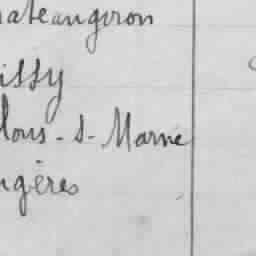 ateaugiron
issy
lons-s-Marne
ugères